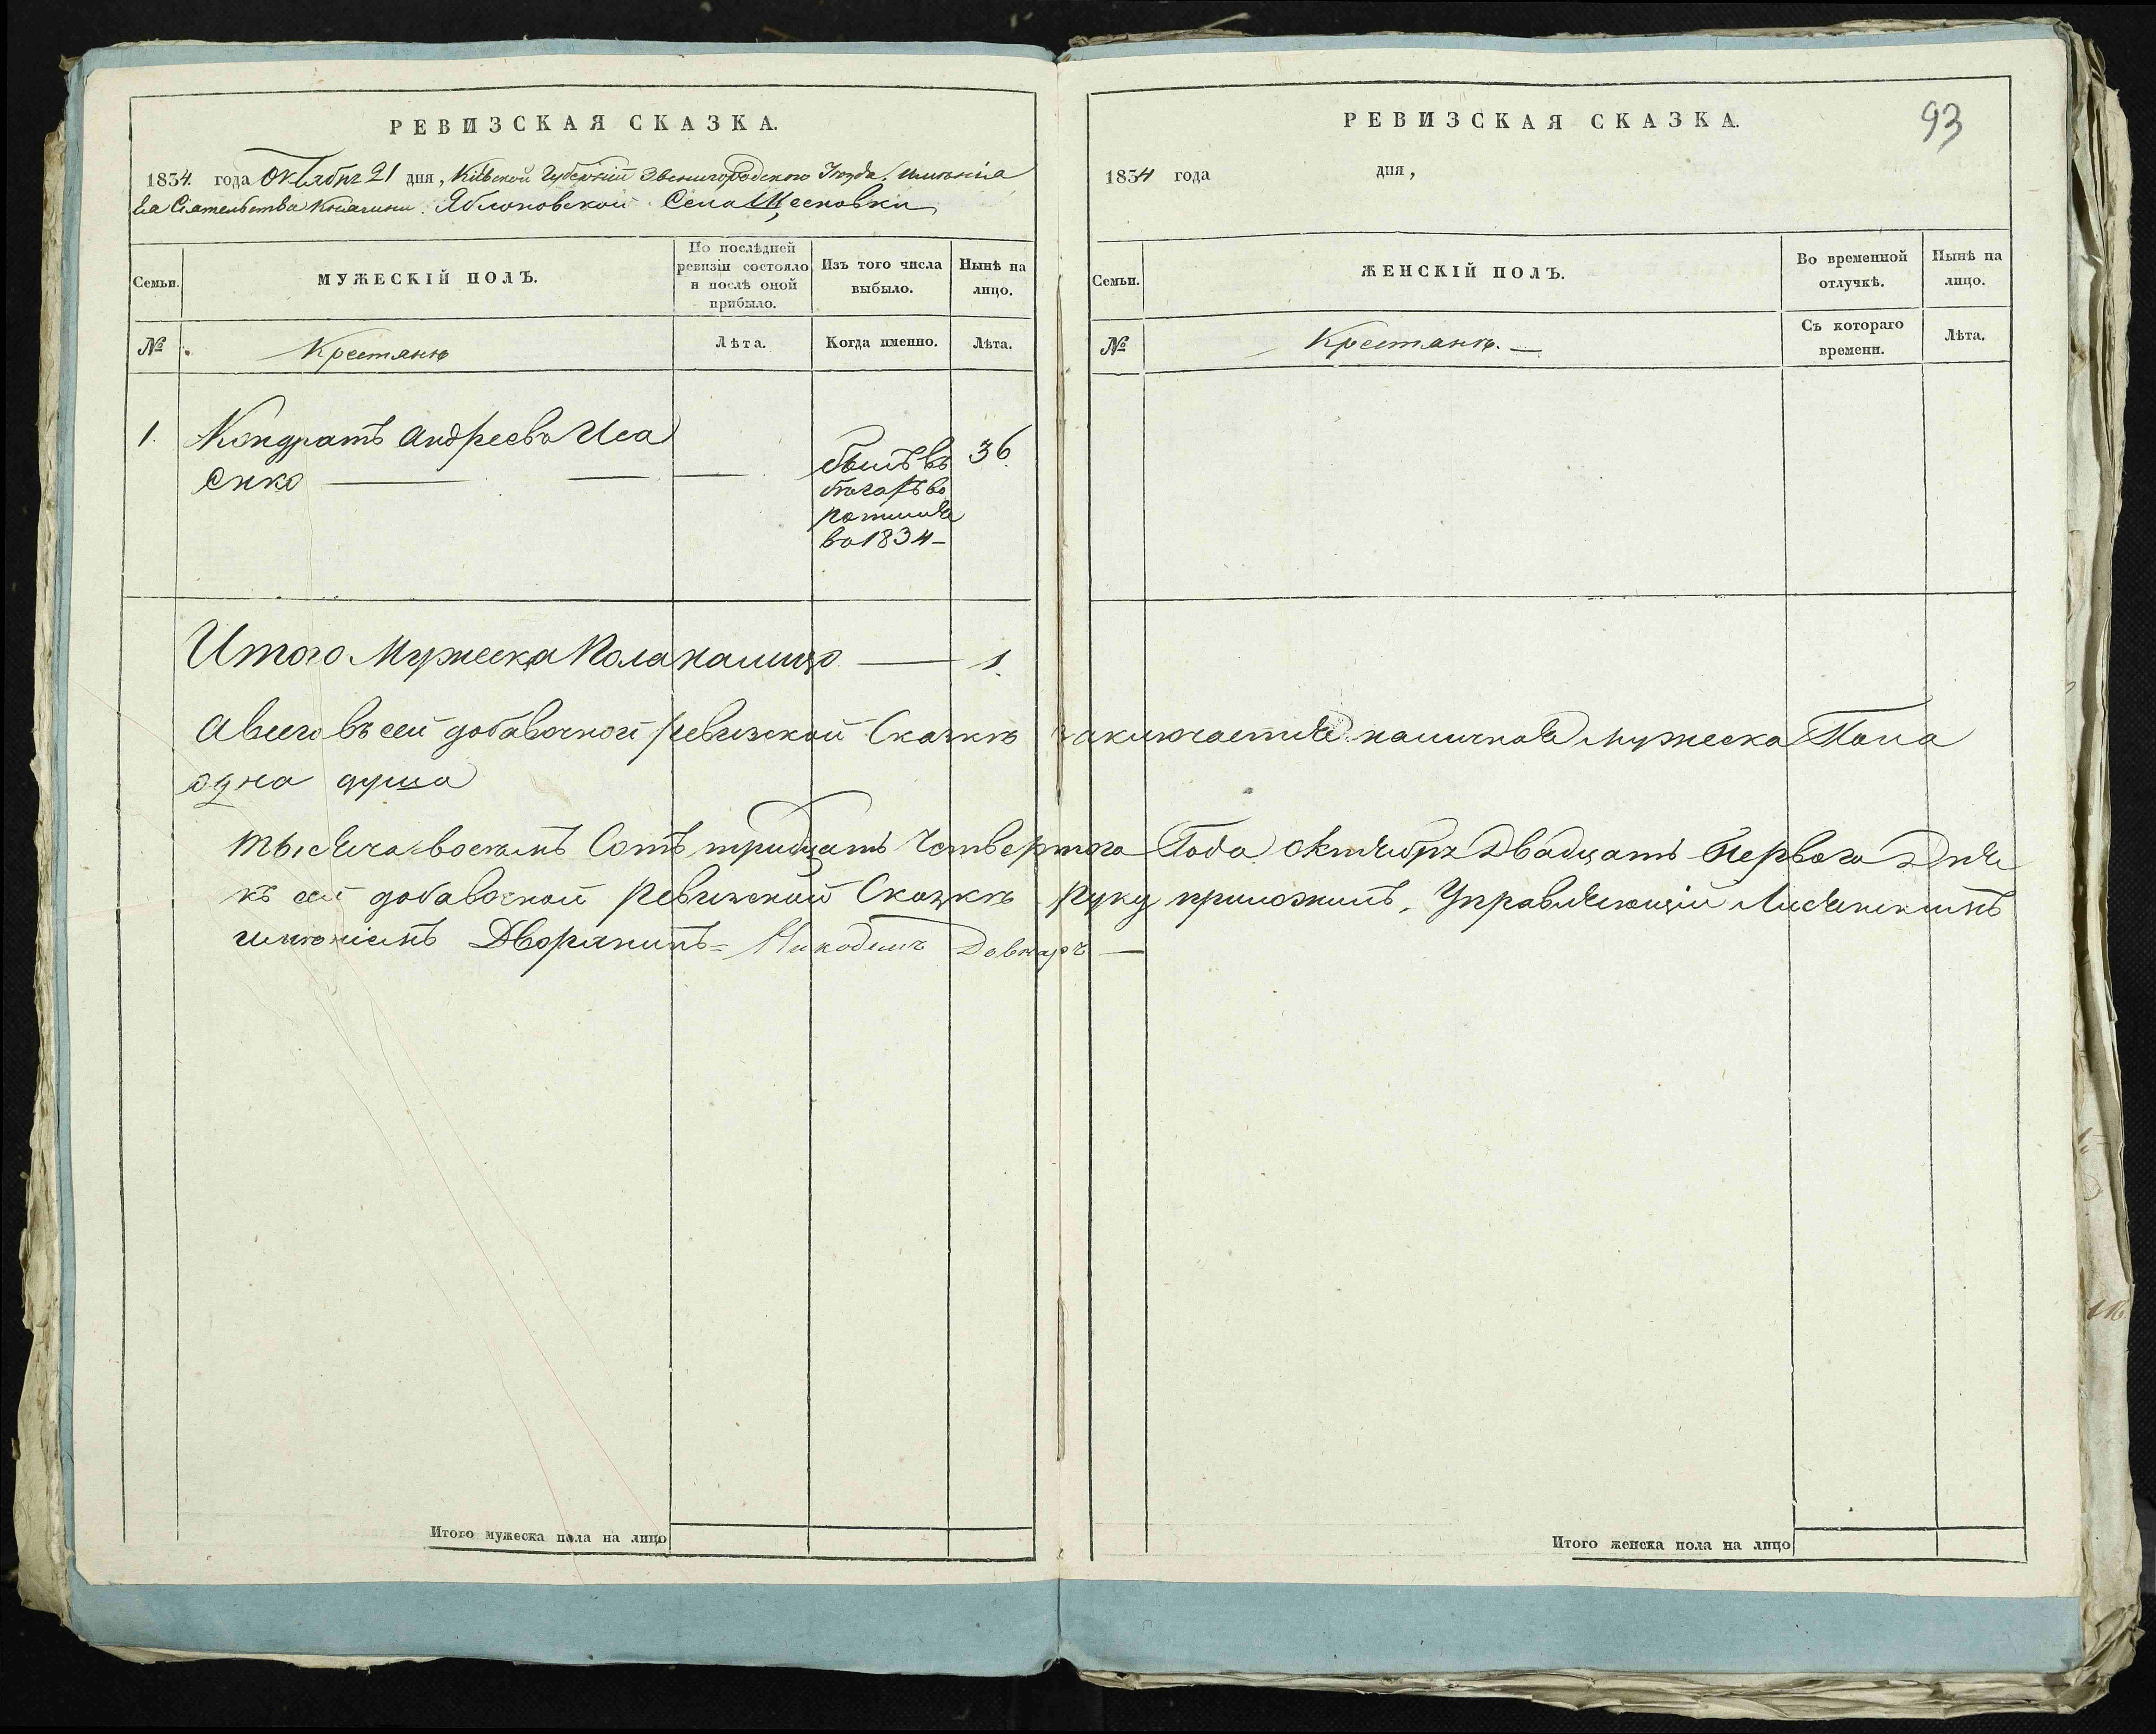 РЕВИЗСКАЯ СКАЗКА.
1834. года Октября 21 дня, Кіевской Губерніи Звенигородского Уезда, имѣнія
Ея Сіятельства Княгини Яблоновской Села
Семьи.
МУЖЕСКІЙ ПОЛЪ.
По послѣдней ревизіи состояло и послѣ оной прибыло.
Изъ того числа выбыло.
Нынѣ на лицо.
№
Крестянѣ
Лѣта.
Когда именно.
Лѣта.
1. Кондратъ Андреевъ Иса
енко
былъ въ
бѣгахъ во
ротился
во 1834
36
Итого Мужеска Пола налицо 1.
РЕВИЗСКАЯ СКАЗКА.
93
1834 года дня,
Семьи.
ЖЕНСКІЙ ПОЛЪ.
Во временной отлучкѣ.
Нынѣ на лицо.
№
Крестянѣ.
Съ котораго времени.
Лѣта.
А всего въ сей добавочной ревизской Сказкѣ заключается наличноя Мужеска Пола
одна душа
Тысяча восемъ Сотъ тридцать Четвертого Года октября Двадцать Первого Дня
къ сей добавочной Ревизской Сказкѣ руку приложилъ, Управляющій Лисянскимъ
имѣніемъ Дворянинъ = Никодимъ
Итого мужеска пола на лицо
Итого женска пола на лицо